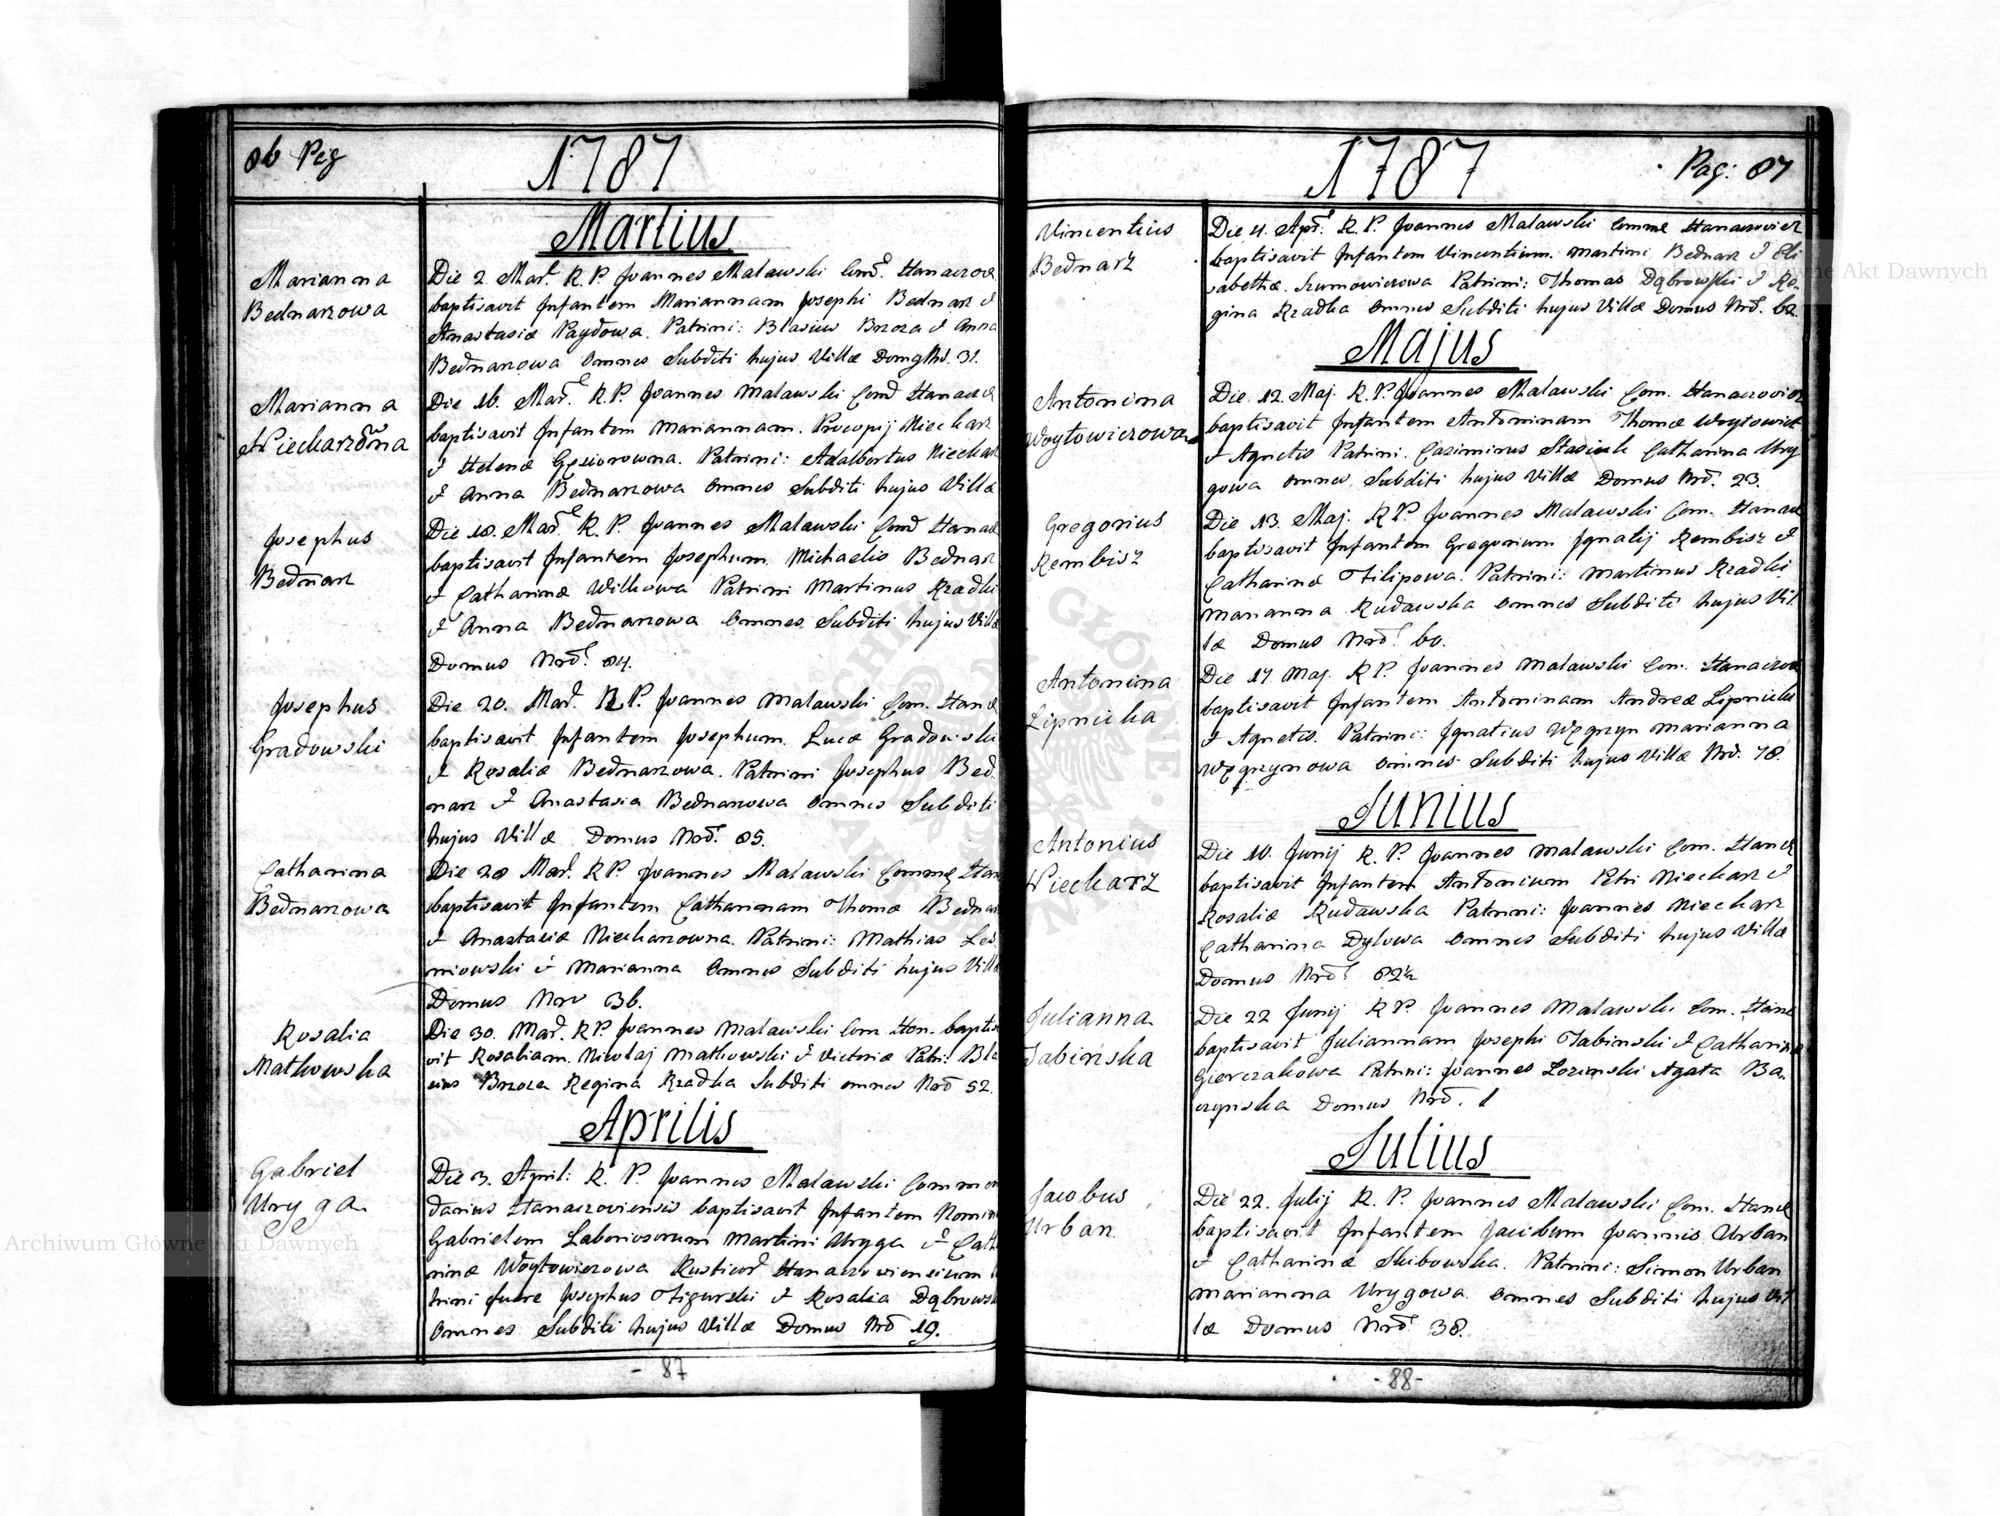 86 Pag
1787
Martius
Marianna
Bednarzowa
Die 2. Mar. R. P. Joannes Malawski Com. Hanaczov
baptisavit Infantem Mariannam Josephi Bednarz &
Anastasiæ Paydowa. Patrini: Blasius Brzoza & Anna
Bednarzowa omnes Subditi hujus Villæ Domq Nrō. 31.
Marianna
Niecharzōna
Die 16. Mar. R. P. Joannes Malawski Comd Hanacz
baptisavit Infantem Mariannam. Procopij Niecharz
& Helenæ Gęsiorowna. Patrini: Adalbertus Niecharz
& Anna Bednarzowa omnes Subditi hujus Villæ
Josephus
Bednarz
Die 18. Mar. R. P. Joannes Malawski Comd Hanacz
baptisavit Infantem Josephum. Michaelis Bednarz
& Catharinæ Wilkowa Patrini Martinus Rzadki
& Anna Bednarzowa Omnes Subditi hujus Villæ
Domus Nrō. 84.
Josephus
Gradowski
Die 20. Mar. R. P. Joannes Malawski Com. Hanac
baptisavit Infantem Josephum. Lucæ Gradowski
& Rosaliæ Bednarzowa. Patrini Josephus Bed.
narz & Anastasia Bednarzowa omnes Subditi
hujus Villæ Domus Nrō. 85.
Catharina
Bednarzowa
Die 28 Mar. R. P. Joannes Malawski Comme Han
baptisavit Infantem Catharinam Thomæ Bednar
& Anastasiæ Niecharzowna. Patrini: Mathias Les
niowski & Marianna Omnes Subditi hujus Villæ
Domus Nro 36.
Rosalia
Matkowska
Die 30. Mar. R. P. Joannes Malawski Com Han. baptisa
vit Rosaliam. Nikolaj Matkowski & Victoriæ Patri: Bla
sius Brzoza Regina Rzadka Subditi omnes Nrō 52.
Aprilis
Gabriel
Uryga
Die 3. April: R. P. Joannes Malawski Commen
darius Hanaczoviensis baptisavit Infantem Nomin
Gabrielem Laboriosorum Martini Uryga & Cath
rinæ Woytowiczowa Rusticor Hanaczoviensium
trini fuere Josephus Figurski & Rosalia Dąbrowsk
Omnes Subditi hujus Villæ Domus Nrō 19.
- 87
1787
Pag: 87
Vincentius
Bednarz
Die 4. Apr. R. P. Joannes Malawski Comme Hanaczovien
baptisavit Infantem Vincentium. Martini Bednarz & Eli
sabethæ. Szumowiczowa Patrini: Thomas Dąbrowski & Re.
gina Rzadka omnes Subditi hujus Villæ Domus Nrō. 62.
Majus
Antonina
Woytowiczowa
Die 12. Maj. R. P. Joannes Malawski Com. Hanaczovien
baptisavit Infantem Antoninam Thomæ Woytowicz
& Agnetis Patrini. Casimirus Stasiuk Catharina Ury
gowa omnes Subditi hujus Villæ Domus Nrō. 23.
Gregorius
Rembisz
Die 13. Maj. R. P. Joannes Malawski Com. Hanacz
baptisavit Infantem Gregorium Ignatij Rembisz &
Catharinæ Filipowa. Patrini: Martinus Rzadki
Marianna Rudawska omnes Subditi hujus Vil.
læ Domus Nrō. 60.
Antonina
Lipnicka
Die 17 Maj. R. P. Joannes Malawski Com. Hanaczov
baptisavit Infantem Antoninam Andreæ Lipnicki
& Agnetis. Patrini: Ignatius Węgrzyn Marianna
Węgrzynowa omnes Subditi hujus Villæ Nro. 78.
Junius
Antonius
Niecharz
Die 10. Junij R. P. Joannes Malawski Com. Hancz
baptisavit Infantem Antonium Petri Niecharz &
Rosaliæ Rudawska Patrini: Joannes Niecharz
Catharina Dylowa omnes Subditi hujus Villæ
Domus Nrō 82½
Julianna
Tabińska
Die 22 Junij R. P. Joannes Malawski Com. Hanc
baptisavit Juliannam Josephi Tabinski & Catharinæ
Gierczakowa Patrini: Joannes Lozinski Agata Ba.
czynska Domus Nrō. 1
Julius
Jacobus
Urban.
Die 22. Julij R. P. Joannes Malawski Com. Hancz
baptisavit Infantem Jacobum Joannis Urban
& Catharinæ Skibowska. Patrini: Simon Urban
Marianna Urygowa omnes Subditi hujus Vil
læ Domus Nrō 38.
- 88 -
Archiwum Główne Akt Dawnych
Archiwum Główne Akt Dawnych